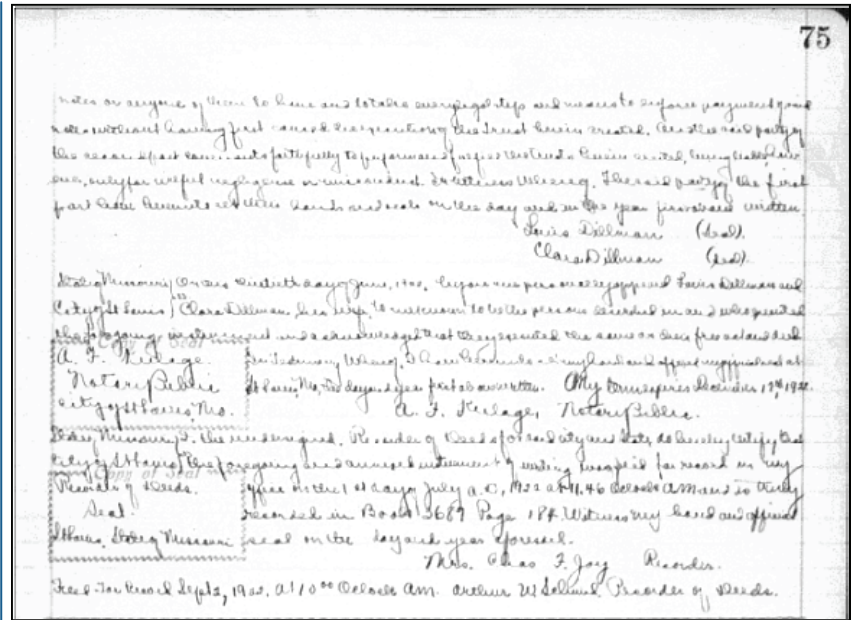 75
notes or anyone of them to have and to take every legal step and means to enforce payment of said
notes without having first caused the execution of the Trust herein created. And the said party of
the second part covenants faithfully to perform and the Trust herein created, being liable, however
only for wilful negligence or misconduct. In Witness Whereof, The said party of the first
part have hereunto set their hands and seals on the day and in the year first above written.
Louis Dillman (Seal).
Clara Dillman (Seal).
State of Missouri On this day of June, 1922, before me personally appeared Louis Dillman and
City of St Louis Clara Dillman, his wife, to me known to be the persons described in and who executed
the foregoing instrument and acknowledged that they executed the same as their free act and deed
Copy of Seal
A. F. Keilage
Notary Public
City of St Louis, Mo.
In Testimony Whereof, I have hereunto set my hand and affixed my official seal at
St Louis, Mo, the day and year first above written. My term expires December 1922.
A. F. Keilage, Notary Public.
State of Missouri I, the undersigned, Recorder of Deeds for said city and State, do hereby certify that
City of St Louis the foregoing and annexed instrument of writing was filed for record in my
Copy of Seal
Recorder of Deeds.
Seal
St Louis, State of Missouri
office on the 1st day of July A.D, 1922 at 11.46 Oclock AM and is truly
recorded in Book 3687 Page 184. Witness my hand and official
seal on the day and year aforesaid.
Mrs. Chas F. Joy Recorder.
Filed for Record Sept 2, 1922, at 10 00 Oclock AM. Arthur W Recorder of Deeds.